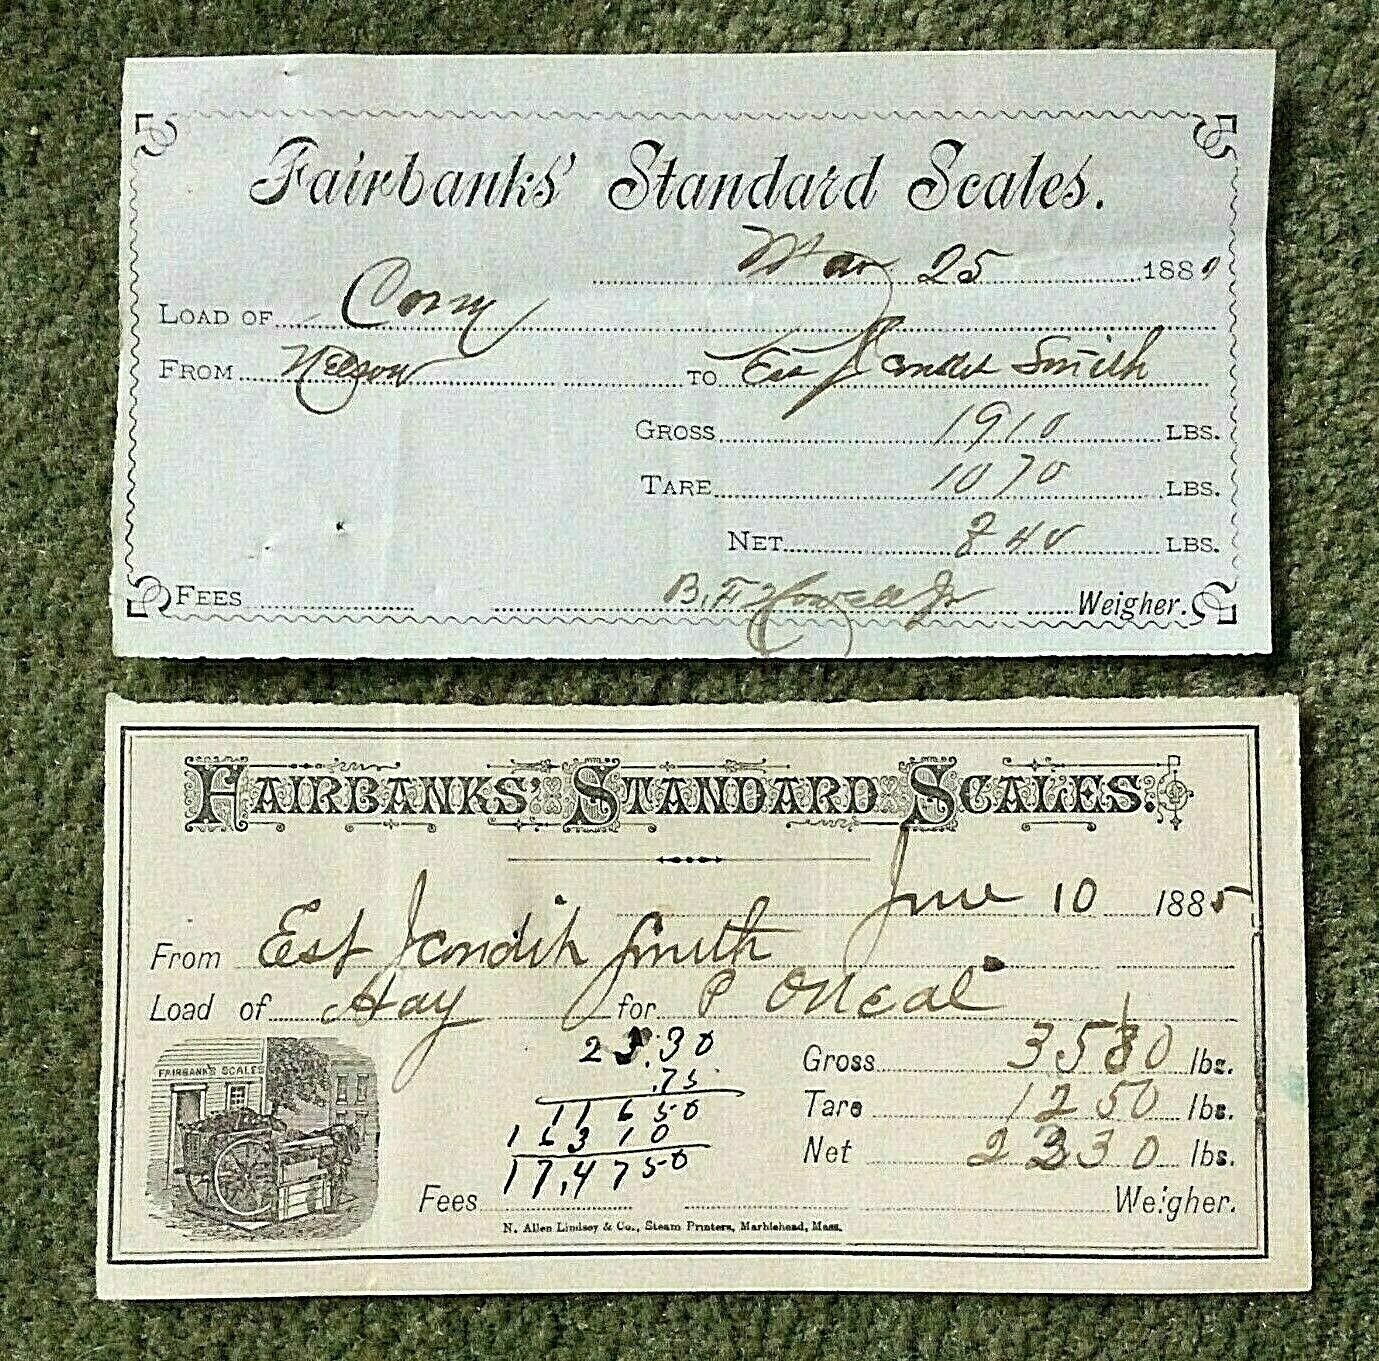 Fairbanks' Standard Scales.
Mar 25 188
LOAD OF Corn
FROM Nelson TO Est Smith
GROSS 1910 LBS.
TARE 1070 LBS.
NET 840 LBS.
FEES B. F. Howell Jr Weigher.
FAIRBANKS' STANDARD SCALES.
June 10 1885
From Est Smith
Load of Hay for P ONeal
FAIRBANKS SCALES
23.30
.75
11650
16310
17,4750
Gross 3580 lbs.
Tare 1250 lbs.
Net 2330 lbs.
Fees Weigher.
N. Allen Lindsey & Co., Steam Printers, Marblehead, Mass.